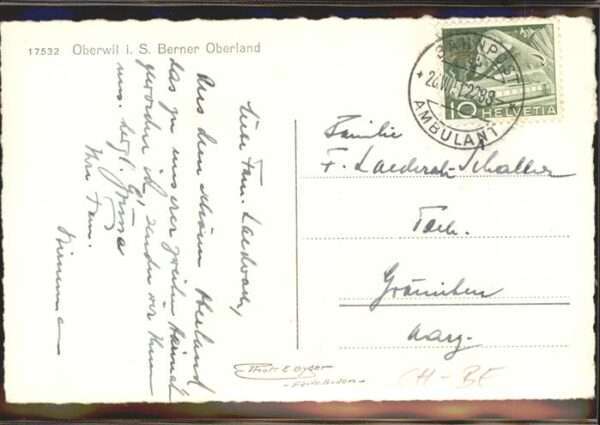 17532 Oberwil i. S. Berner Oberland
Liebe Fam. Laederach,
Aus dem schönen Oberland
das zu unserer zweiten Heimat
geworden ist, senden wir Ihnen
uns. herzl. Grüsse
Ihre Fam.
BAHNPOST
AMBULANT
10 HELVETIA
Familie
F. Laederach-Schaller
Gränichen
Aarg.
Phot E Gyger
Adelboden
CH-BE